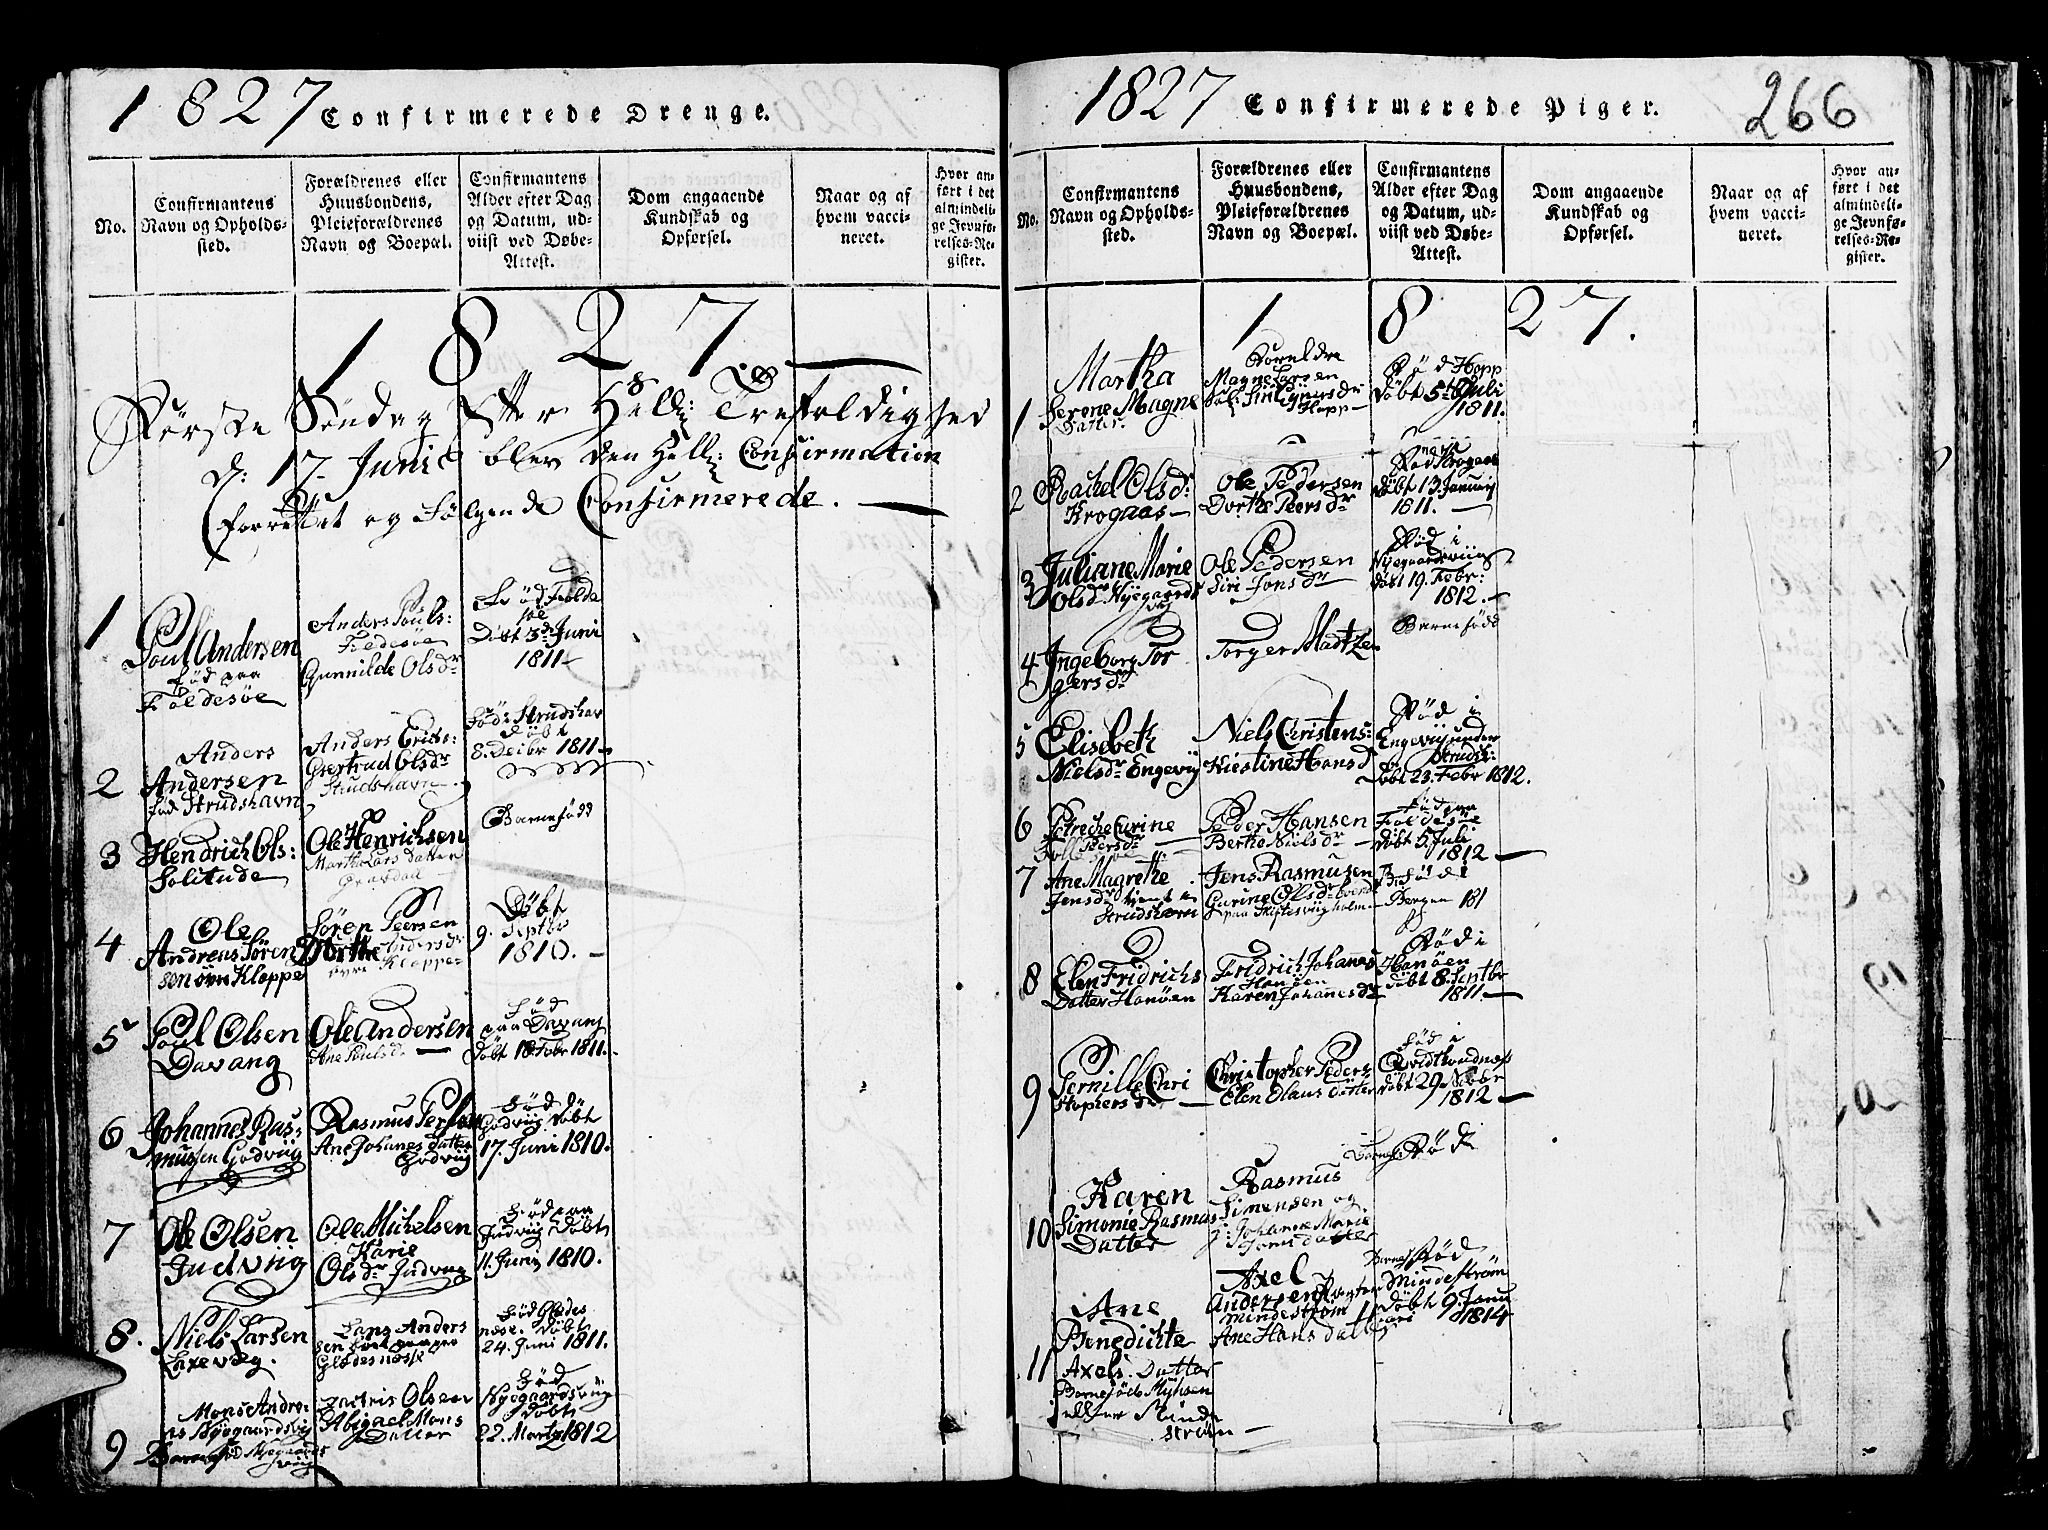 1827 Confirmerede Drenge.
No.
Confirmantens
Navn og Opholds-
sted.
Forældrenes eller
Huusbondens,
Pleieforældrenes
Navn og Boepæl.
Confirmantens
Alder efter Dag
og Datum, ud-
viist ved Døbe-
Attest.
Dom angaaende
Kundskab og
Opførsel.
Naar og af
hvem vacci-
neret.
Hvor an-
ført i det
almindeli-
ge Jevnfø-
relses-Re-
gister.
1827
Første Søndag Efter Hell: Trefoldighed
d: 17. Junii blev den Hell: Confirmation
forrettet og følgende Confirmerede.
1
Poul Andersen
fød paa
Foldesøe
Anders Pouls:
Foldesøe
Gunnilde Olsdr
Fød Folde
søe
Døbt 3de Juni
1811
2
Anders
Andersen
fød Strudshavn
Anders Erics:
Gertrud Olsdr
Strudshavn
fød: Strudshav
døbt
8. Deibr 1811
3
Hendrich Ols:
Solitude
Ole Henrichsen
Martha Lars Datter
Gravdal
Barnefødd
4
Ole
Andreas Søren
sen øvre Kleppe
Søren Peersen
Dorthe Andersdr
øvre Kleppe
Døbt
9. Septbr
1810.
5
Poul Olsen
Davang
Ole Andersen
Ane Poulsd.
fød
paa Davang
døbt 18 Febr 1811.
6
Johannes Ras-
musen Godviig
Rasmus Persen
Ane Johanes datter
Godviig
Fød
Godviig Døbt
17. Juni 1810.
7
Ole Olsen
Judviig
Ole Michelsen
Karie
Olsdr Judviig
Fød paa
Judviig Døbt
11. Junij 1810.
8.
Niels Larsen
Laxevæg.
Lars Anders
sen
Glesnesse
Fød Glesnes
nose. Døbt
24. Juni 1811.
9
Mons Andre
as Nygaardsvig
Barnefød Nygaards
viig
Olsen
Abigael Mons
Datter
Fød
Nygaardsviig
Døbt
22. Marty 1812
1827 Confirmerede Piger.
266
No.
Confirmantens
Navn og Opholds-
sted.
Forældrenes eller
Huusbondens,
Pleieforældrenes
Navn og Boepæl.
Confirmantens
Alder efter Dag
og Datum, ud-
viist ved Døbe-
Attest.
Dom angaaende
Kundskab og
Opførsel.
Naar og af
hvem vacci-
neret.
Hvor an-
ført i det
almindeli-
ge Jevnfø-
relses-Re-
gister.
1827.
1
Martha
Serene Magne
Datter.
Foreldre
Magne Larsen
Hopp
Fød Hopp
Døbt 5te Juli
1811.
2
Rachel Olsdr
Krogaas
Ole Pedersen
Dorthe Peersdr
Fød Krogaas
døbt 13. Januarij
1811.
3
Juliane Marie
Olsdr Nygaards
vig
Ole Pedersen
Siri Jonsdr
Fød i
Nygaardsviig
døbt 19. Febr:
1812.
4
Ingeborg Tor
gersdr
Torger Madtzen
Barnefødd
5
Elisebeth
Nielsdr Engeviij
Niels Christens:
Kiestine Hansd
Fød i
Engeviij under
Strudsh:
Døbt 23. Febr 1812.
6
Petreche Curine
Peersdr
Peder Hansen
Bertho Nielsdr
fød paa
Foldesøe
døbt 5. Juli
1812
7
Ane Magrethe
Jensdr
Strudshavn
Jens Rasmusen
Gurine Olsdr
paa Skiftesviigholm
Fød i
Bergen 181
8
Elen Fridrichs
Datter Hanøen
Fridrich Johanes
Hanøen
Karen Johanesdr
Fød i
Hanøen
døbt 8. Septbr
1811.
9
Pernille Chri
stophersdr
Christopher Peders
Elen Olaus datter
fød i
døbt 29 Novbr
1812
10
Karen
Simonie Rasmus
Datter
Rasmus
Simensen og
Johanne Marie
Jons datter
Barnefød
11
Ane
Benedichte
Axels. Datter
Barnefød
eller Minde
strøm
Axel
Andersen
Mindestrøm
Ane Hans datter
Barnefød
Mindestrøm
Døbt 9. Janu
ari 1814